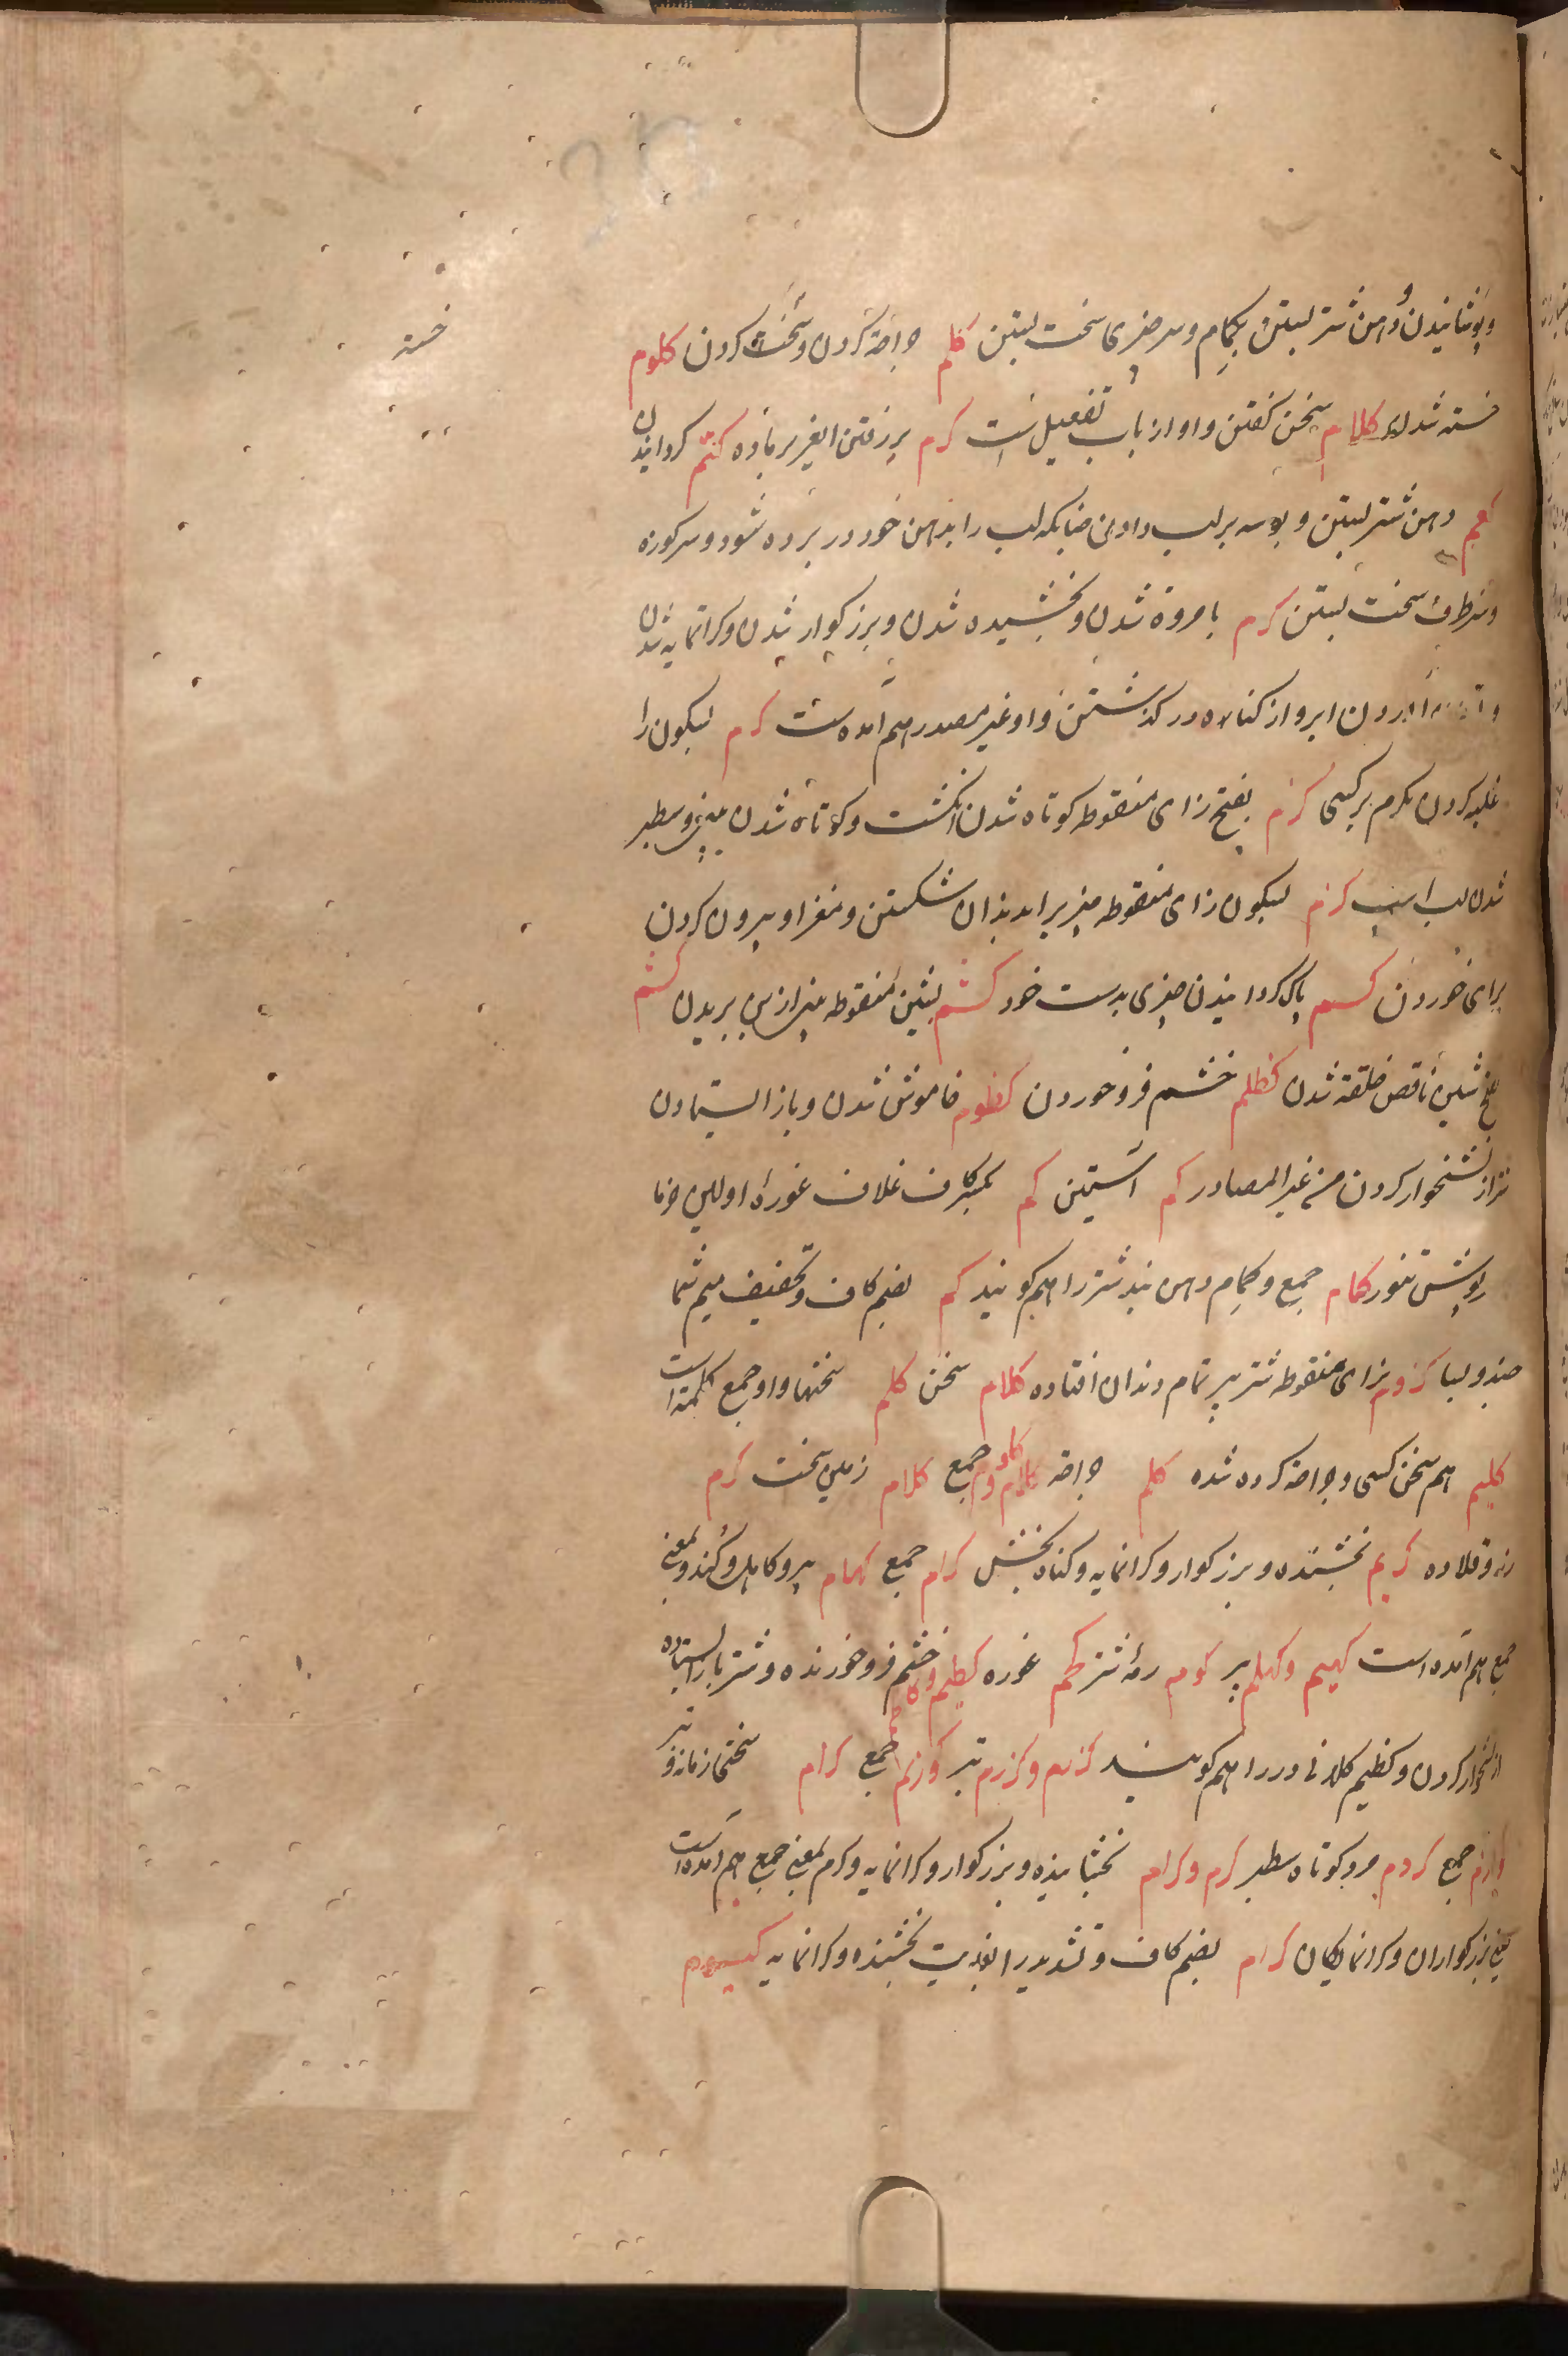 و پوشانیدن و دهن شتر بستن بکمام و سر چیزی سخت بستن کلم جراحة کردن و سخت کردن کلوم
خسته
خسته شدن کلام سخن کفتن و او از باب تفعیل است کرم برزفتن اغیر بر ماده کتم کردانیدن
کعم دهن شتر بستن و بوسه بر لب دادن چنانکه لب را بدهن خود در برده شود و سر کوزه
و ظرف سخت بستن کرم با مروة شدن و بخشیده شدن و بزرکوار شدن و کرانمایه شدن
آوردن ابر و از کناره در کذشتن و او غیر مصدر هم آمده است کرم بسکون را
غلبه کردن بکرم بر کسی کزم بفتح زای منقوطه کوتاه شدن انکشت و کوتاه شدن بینی و سطبر
شدن لب اسپ کزم بسکون زای منقوطه چیزیرا بدندان شکستن و مغز او بیرون کردن
برای خوردن کسم پاک کردانیدن چیزی بدست خود کشم بشین منقوطه بینی از بن بریدن کشم
شدن ناقص خلقة شدن کظم خشم فرو خوردن کظوم خاموش شدن و باز ایستادن
شتر از نشخوار کردن من غیر المصادر کم آستین کم بکسر کاف غلاف غوره اولین خرما
و پوشش تنور کمام جمع و کمام دهن بند شتر را هم کویند کم بضم کاف و تخفیف میم شما
چند و بسا کزوم بزای منقوطه شتر پیر تمام دندان افتاده کلام سخن کلم سخنها و او جمع کلمة است
کلیم هم سخن کسی و جراحة کرده شده کلم جراحة کلام و کلوم جمع کلام زمین سخت کرم
رز و قلاده کریم بخشنده و بزرکوار و کرانمایه و کناه بخش کرام جمع کهام پیر و کاهل و کند و بمعنی
جمع هم آمده است کهیم و کهلم پیر کوم رمه شتر کم غوره کظیم و کاظم خشم فرو خورنده و شتر باز ایستاده
از نشخوار کردن و کظیم کلانی در را هم کویند کزیم و کرزم تبر کرازم جمع کرام سختی زمانه و تبر
کرازم جمع کردم مرد کوتاه سطبر کرم و کرام بخشاینده و بزرکوار و کرانمایه و کرم بمعنی جمع هم آمده است
یعنی بزرکواران و کرانمایکان کرام بضم کاف و تشدید را بغایت بخشنده و کرانمایه کیسوم